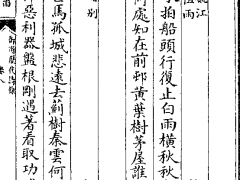 姚江
雨
拍船頭行復止白雨橫秋秋
何處知在前邨黃葉樹茅屋誰
別
馬孤城悲遠去薊樹秦雲何
惡利器盤根剛遇著看取功
歷代詩餘 卷